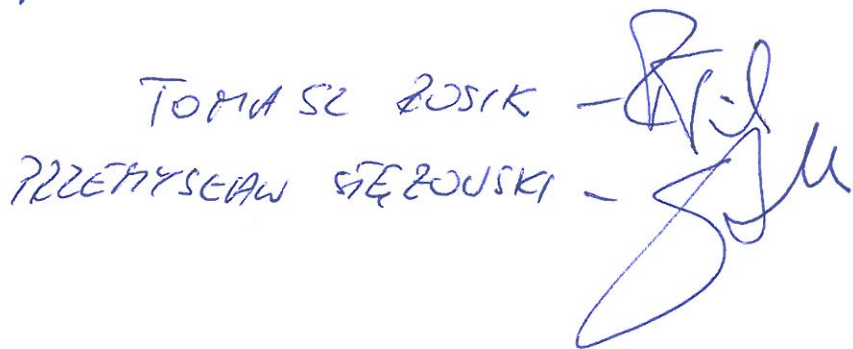 TOMASZ ŁOSIK -
PRZEMYSŁAW STĘŻOWSKI -